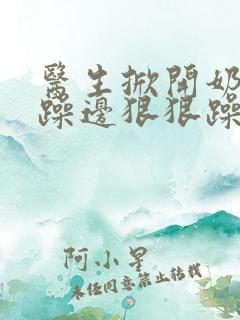 醫生掀開奶
躁邊狠狠躁
阿小星
未经同意禁止转载